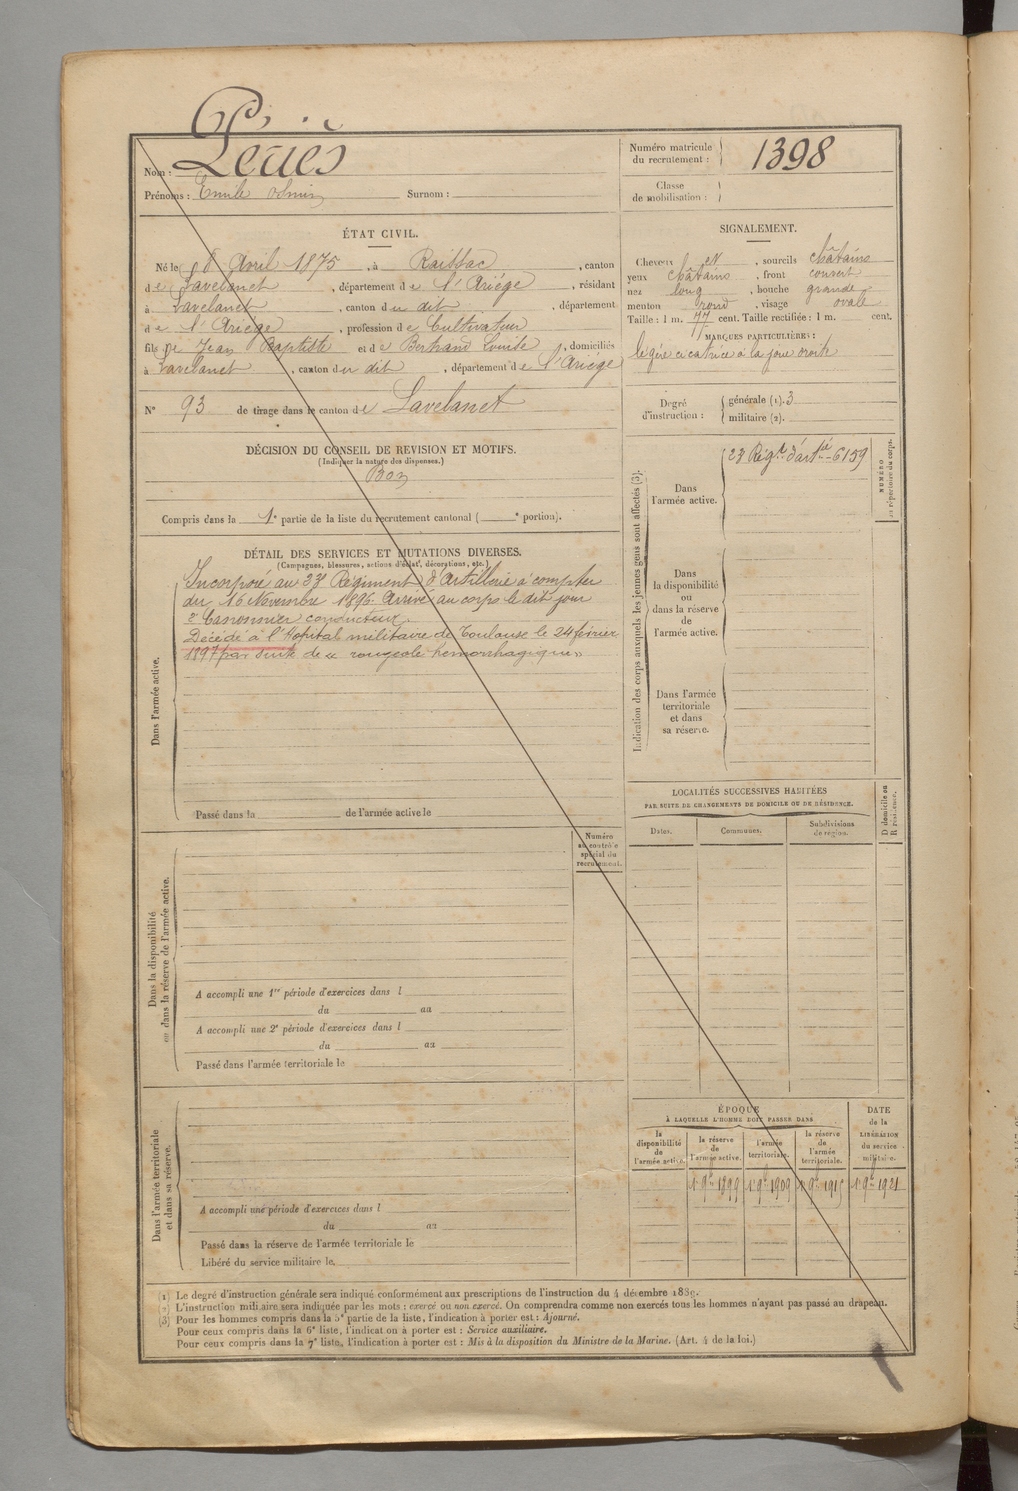 Nom :
Prénoms : Emile Surnom :
Numéro matricule du recrutement : 1398
Classe de mobilisation :
ÉTAT CIVIL.
Né le 8 Avril 1875, à Raissac, canton
de Lavelanet, département de l'Ariège, résidant
à Lavelanet, canton du dit, département
de l'Ariège, profession de Cultivateur
fils de Jean Baptiste et de Bertrand Louise, domiciliés
à Lavelanet, canton du dit, département de l'Ariège
N° 93 de tirage dans le canton de Lavelanet
SIGNALEMENT.
Cheveux , sourcils châtains
yeux châtains, front couvert
nez long, bouche grande
menton rond, visage ovale
Taille : 1 m. 77 cent. Taille rectifiée : 1 m. cent.
MARQUES PARTICULIÈRES :
légère cicatrice à la joue droite
Degré d'instruction : générale (1). 3
militaire (2).
DÉCISION DU CONSEIL DE REVISION ET MOTIFS.
(Indiquer la nature des dispenses.)
Bon
Compris dans la 1e partie de la liste du recrutement cantonal ( e portion).
DÉTAIL DES SERVICES ET MUTATIONS DIVERSES.
(Campagnes, blessures, actions d'éclat, décorations, etc.)
Dans l'armée active.
Incorporé au 23e Régiment d'Artillerie à compter
du 16 Novembre 1896. Arrivé au corps le dit jour
2e Canonnier conducteur.
Décédé à l'Hôpital militaire de Toulouse le 24 février
1897 par suite de « rougeole hémorrhagique »
Passé dans la de l'armée active le
Indication des corps auxquels les jeunes gens sont affectés (3).
Dans l'armée active.
23 Régt d'artie 6159
NUMÉRO au répertoire du corps.
Dans la disponibilité ou dans la réserve de l'armée active.
Dans l'armée territoriale et dans sa réserve.
LOCALITÉS SUCCESSIVES HABITÉES
PAR SUITE DE CHANGEMENTS DE DOMICILE OU DE RÉSIDENCE.
Dates. Communes. Subdivisions de région.
D domicile ou R résidence.
Numéro au contrôle spécial du recrutement.
Dans la disponibilité ou dans la réserve de l'armée active.
A accompli une 1re période d'exercices dans l
du au
A accompli une 2e période d'exercices dans l
du au
Passé dans l'armée territoriale le
Dans l'armée territoriale et dans sa réserve.
A accompli une période d'exercices dans l
du au
Passé dans la réserve de l'armée territoriale le
Libéré du service militaire le.
ÉPOQUE
À LAQUELLE L'HOMME DOIT PASSER DANS
la disponibilité de l'armée active. la réserve de l'armée active. l'armée territoriale. la réserve de l'armée territoriale.
DATE de la LIBÉRATION du service militaire.
1 9bre 1899 1 9bre 1909 1 9bre 1915 1 9bre 1921
(1) Le degré d'instruction générale sera indiqué conformément aux prescriptions de l'instruction du 4 décembre 1889.
(2) L'instruction militaire sera indiquée par les mots : exercé ou non exercé. On comprendra comme non exercés tous les hommes n'ayant pas passé au drapeau.
(3) Pour les hommes compris dans la 5e partie de la liste, l'indication à porter est : Ajourné.
Pour ceux compris dans la 6e liste, l'indication à porter est : Service auxiliaire.
Pour ceux compris dans la 7e liste, l'indication à porter est : Mis à la disposition du Ministre de la Marine. (Art. 4 de la loi.)